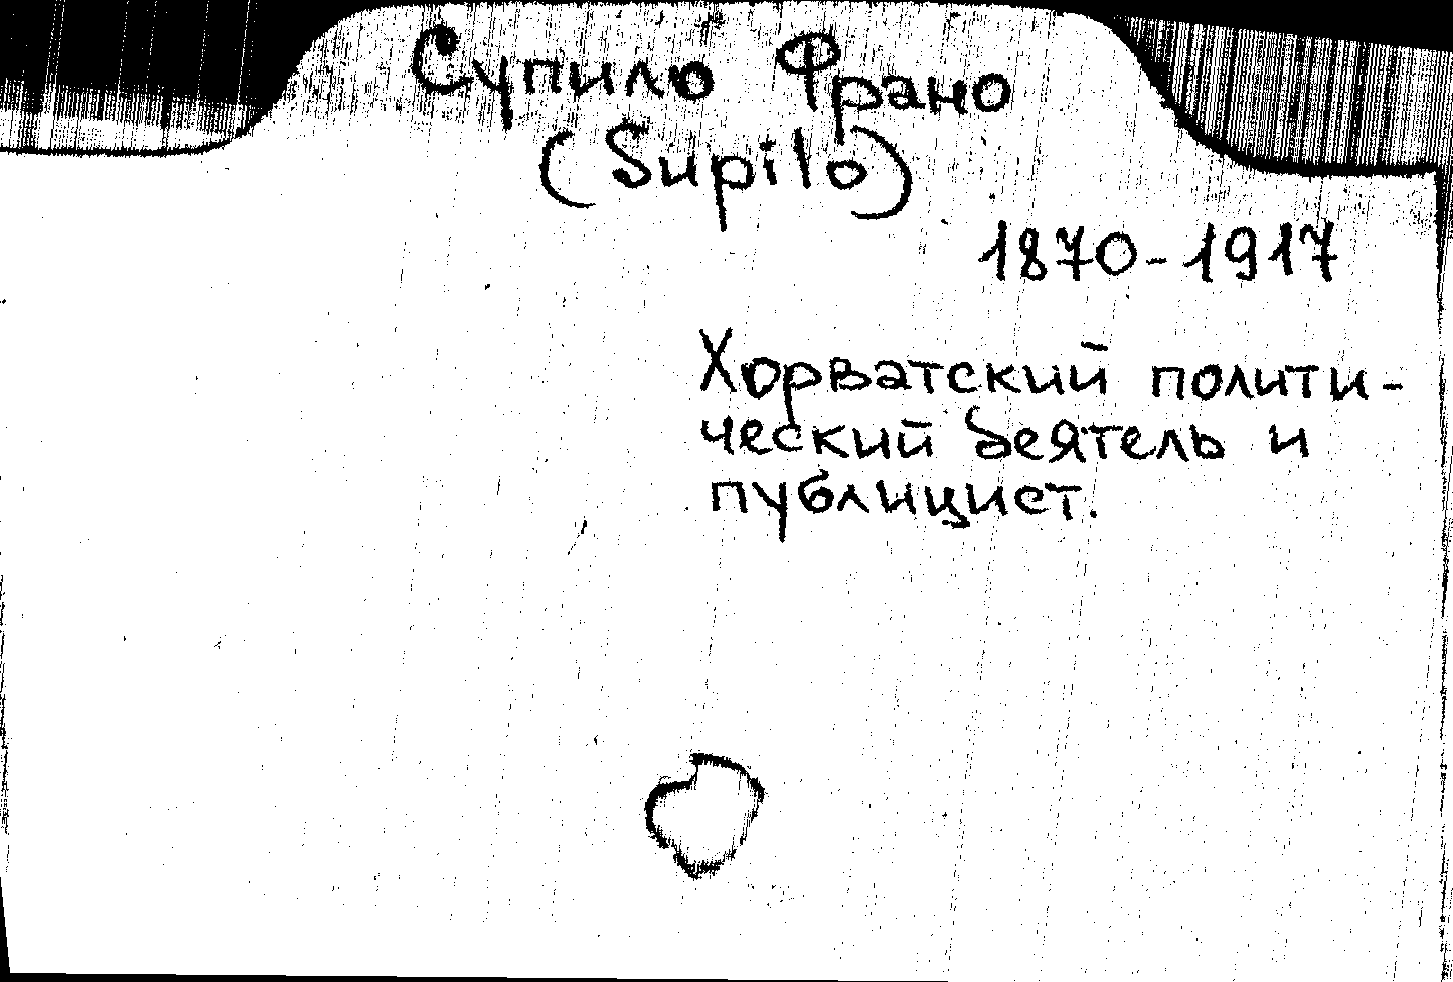 Супило Франо
(Supilo)
1870-1917
Хорватский полити-
ческий деятель и
публицист.